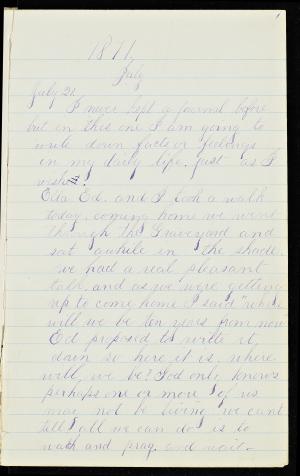 1871,
July
July 21.
I never kept a journal before
but in this one I am going to
write down facts or feelings
in my daily life. just as I
wish.
Ella Ed. and I took a walk
today. coming home we went
through the Graveyard and
sat awhile in the shade.
we had a real pleasant
talk. and as we were getting
up to come home I said "where
will we be ten years from now"
Ed proposed to write it
down so here it is, where
will we be? God only knows
perhaps one or more of us
may not be living we cant
tell all we can do is to
watch and pray. and wait-